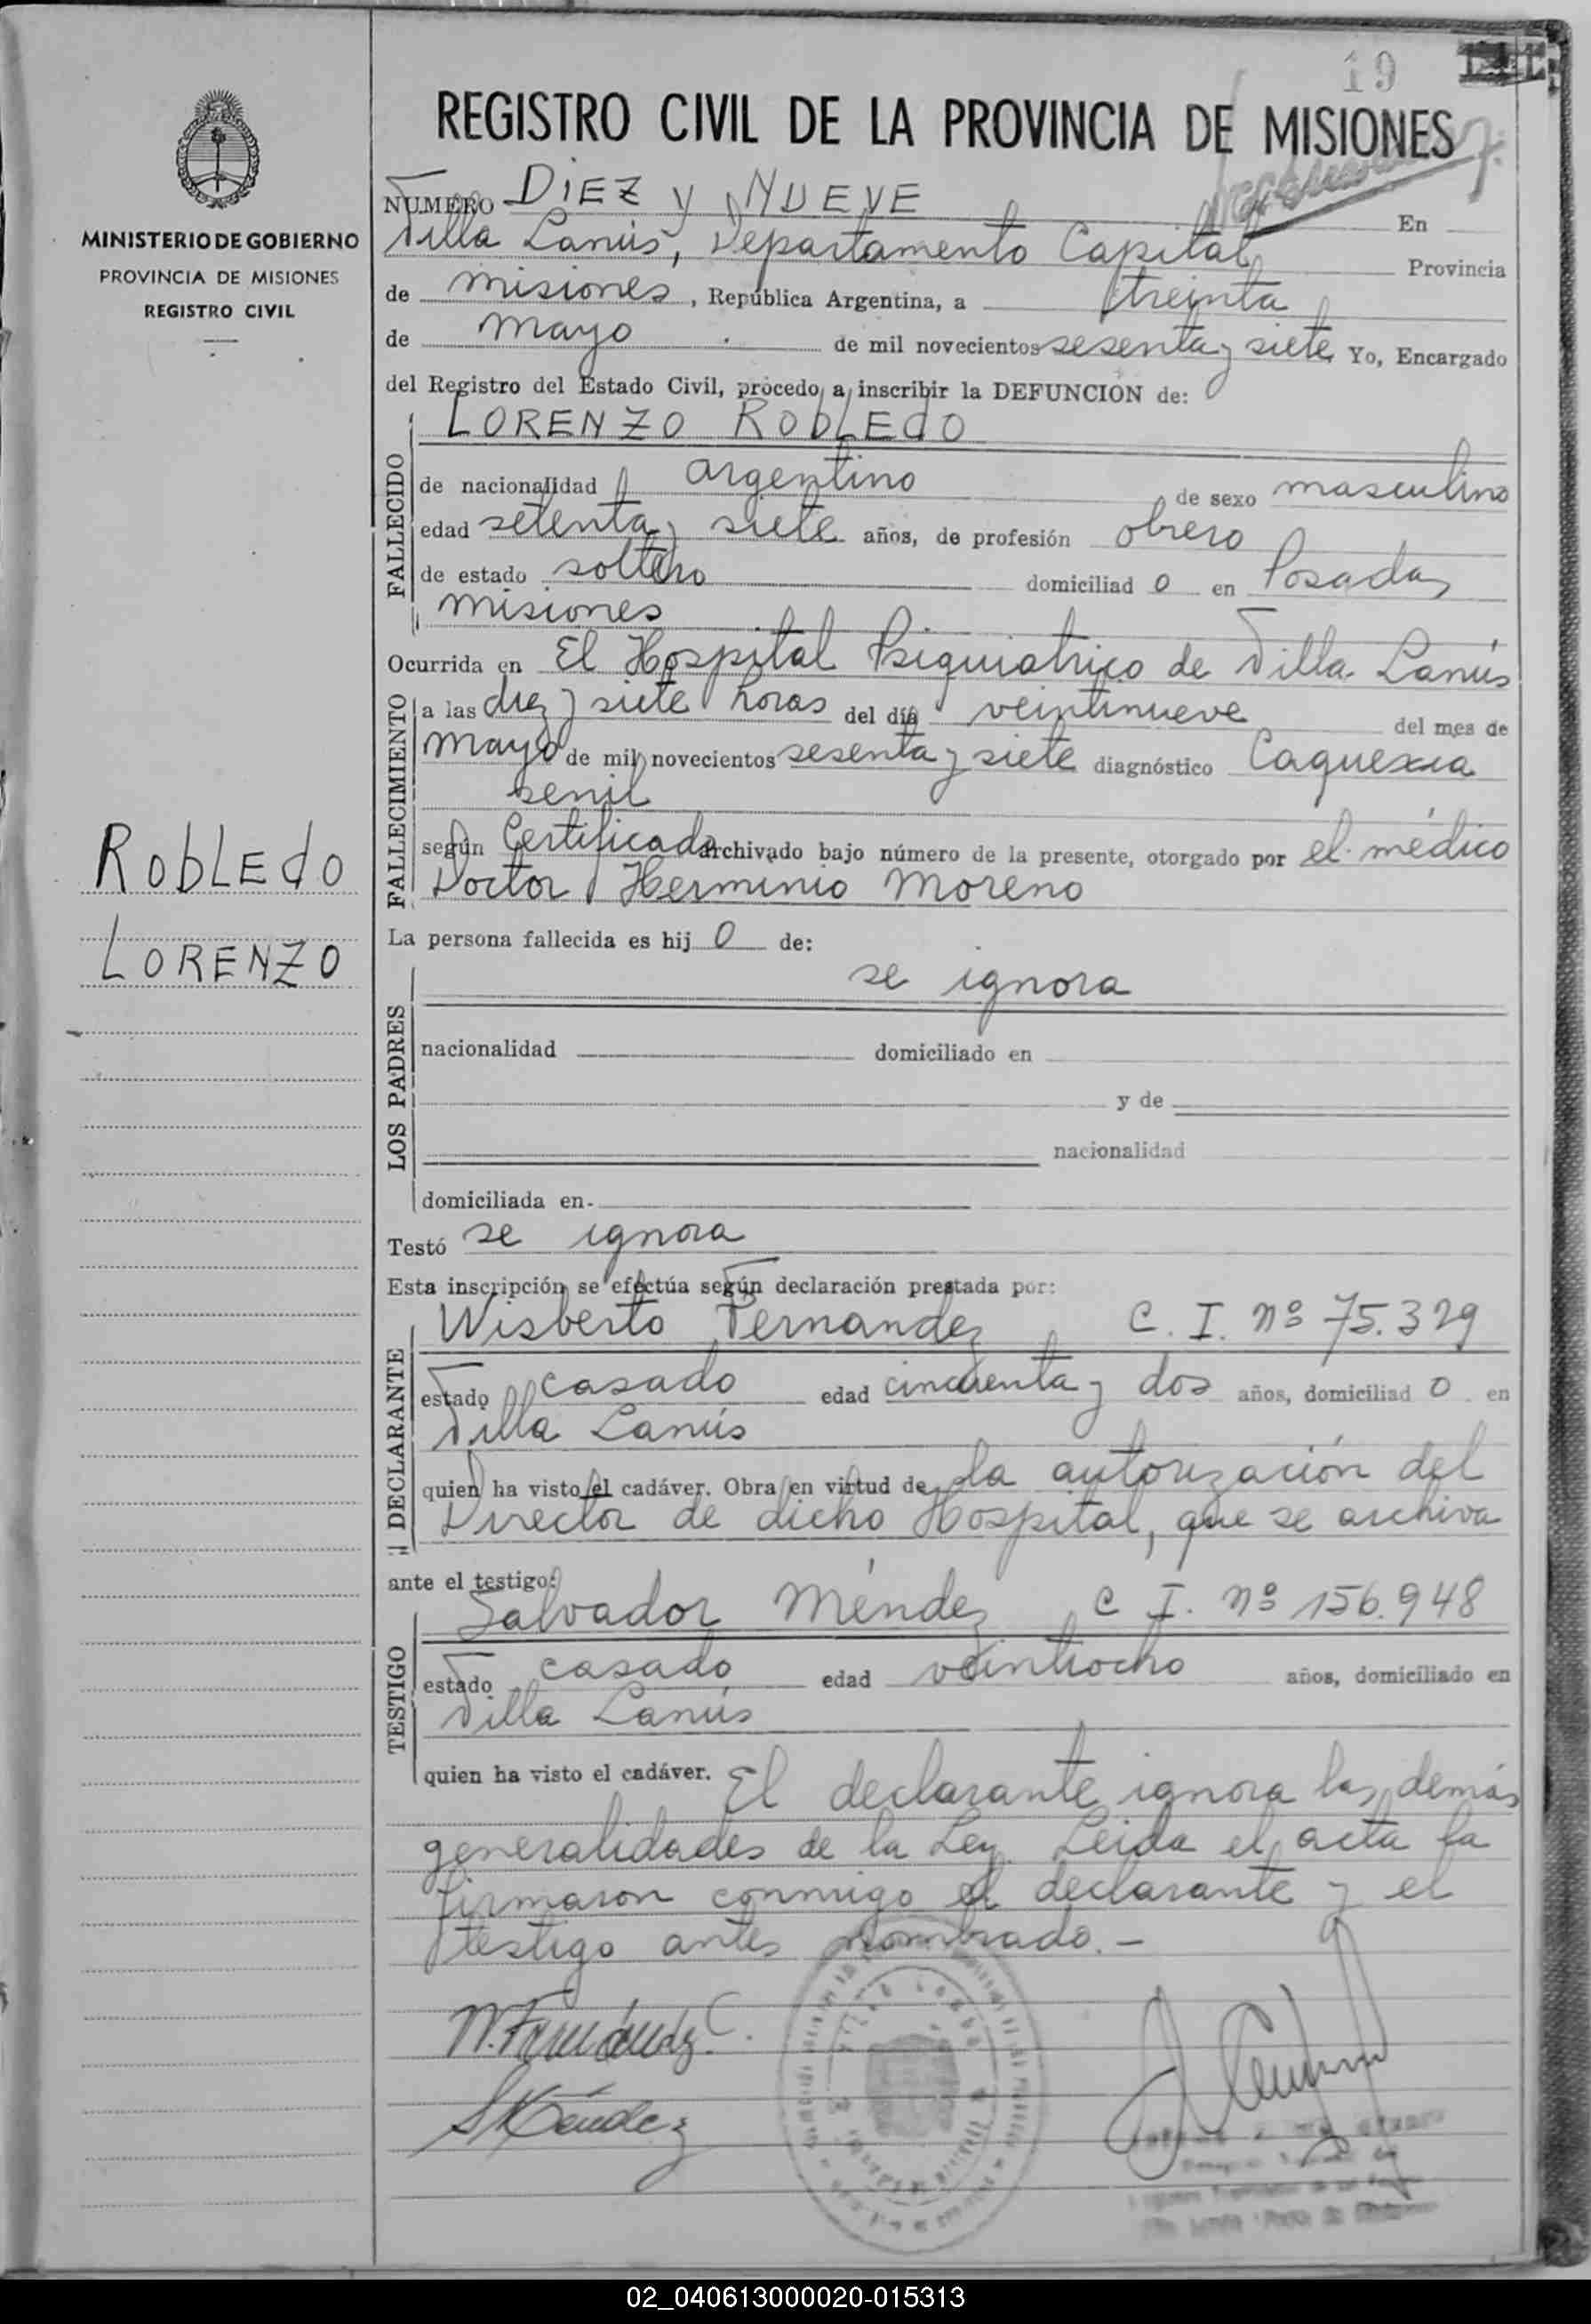 19
REGISTRO CIVIL DE LA PROVINCIA DE MISIONES
MINISTERIO DE GOBIERNO
PROVINCIA DE MISIONES
REGISTRO CIVIL
ROBLEDO
LORENZO
NUMERO DIEZ y NUEVE En
Villa Lanús, Departamento Capital Provincia
de Misiones, República Argentina, a treinta
de Mayo de mil novecientos sesenta y siete Yo, Encargado
del Registro del Estado Civil, procedo a inscribir la DEFUNCION de:
FALLECIDO
LORENZO ROBLEDO
de nacionalidad argentino de sexo masculino
edad setenta y siete años, de profesión obrero
de estado soltero domiciliad o en Posadas
Misiones
Ocurrida en El Hospital Psiquiatrico de Villa Lanús
FALLECIMIENTO
a las diez y siete horas del día veintinueve del mes de
Mayo de mil novecientos sesenta y siete diagnóstico Caquexia
senil
según Certificado archivado bajo número de la presente, otorgado por el médico
Doctor Herminio Moreno
La persona fallecida es hij o de:
LOS PADRES
se ignora
nacionalidad domiciliado en
y de
nacionalidad
domiciliada en
Testó se ignora
Esta inscripción se efectúa según declaración prestada por:
DECLARANTE
Wisberto Fernandez C. I. nº 75.329
estado casado edad cincuenta y dos años, domiciliad o en
Villa Lanús
quien ha visto el cadáver. Obra en virtud de la autorización del
Director de dicho Hospital, que se archiva
ante el testigo:
TESTIGO
Salvador Méndez C I. nº 156.948
estado casado edad veintiocho años, domiciliado en
Villa Lanús
quien ha visto el cadáver. El declarante ignora las demás
generalidades de la Ley. Leida el acta la
firmaron conmigo el declarante y el
testigo antes nombrado.-
W. Fernández C.
S Méndez
02_040613000020-015313